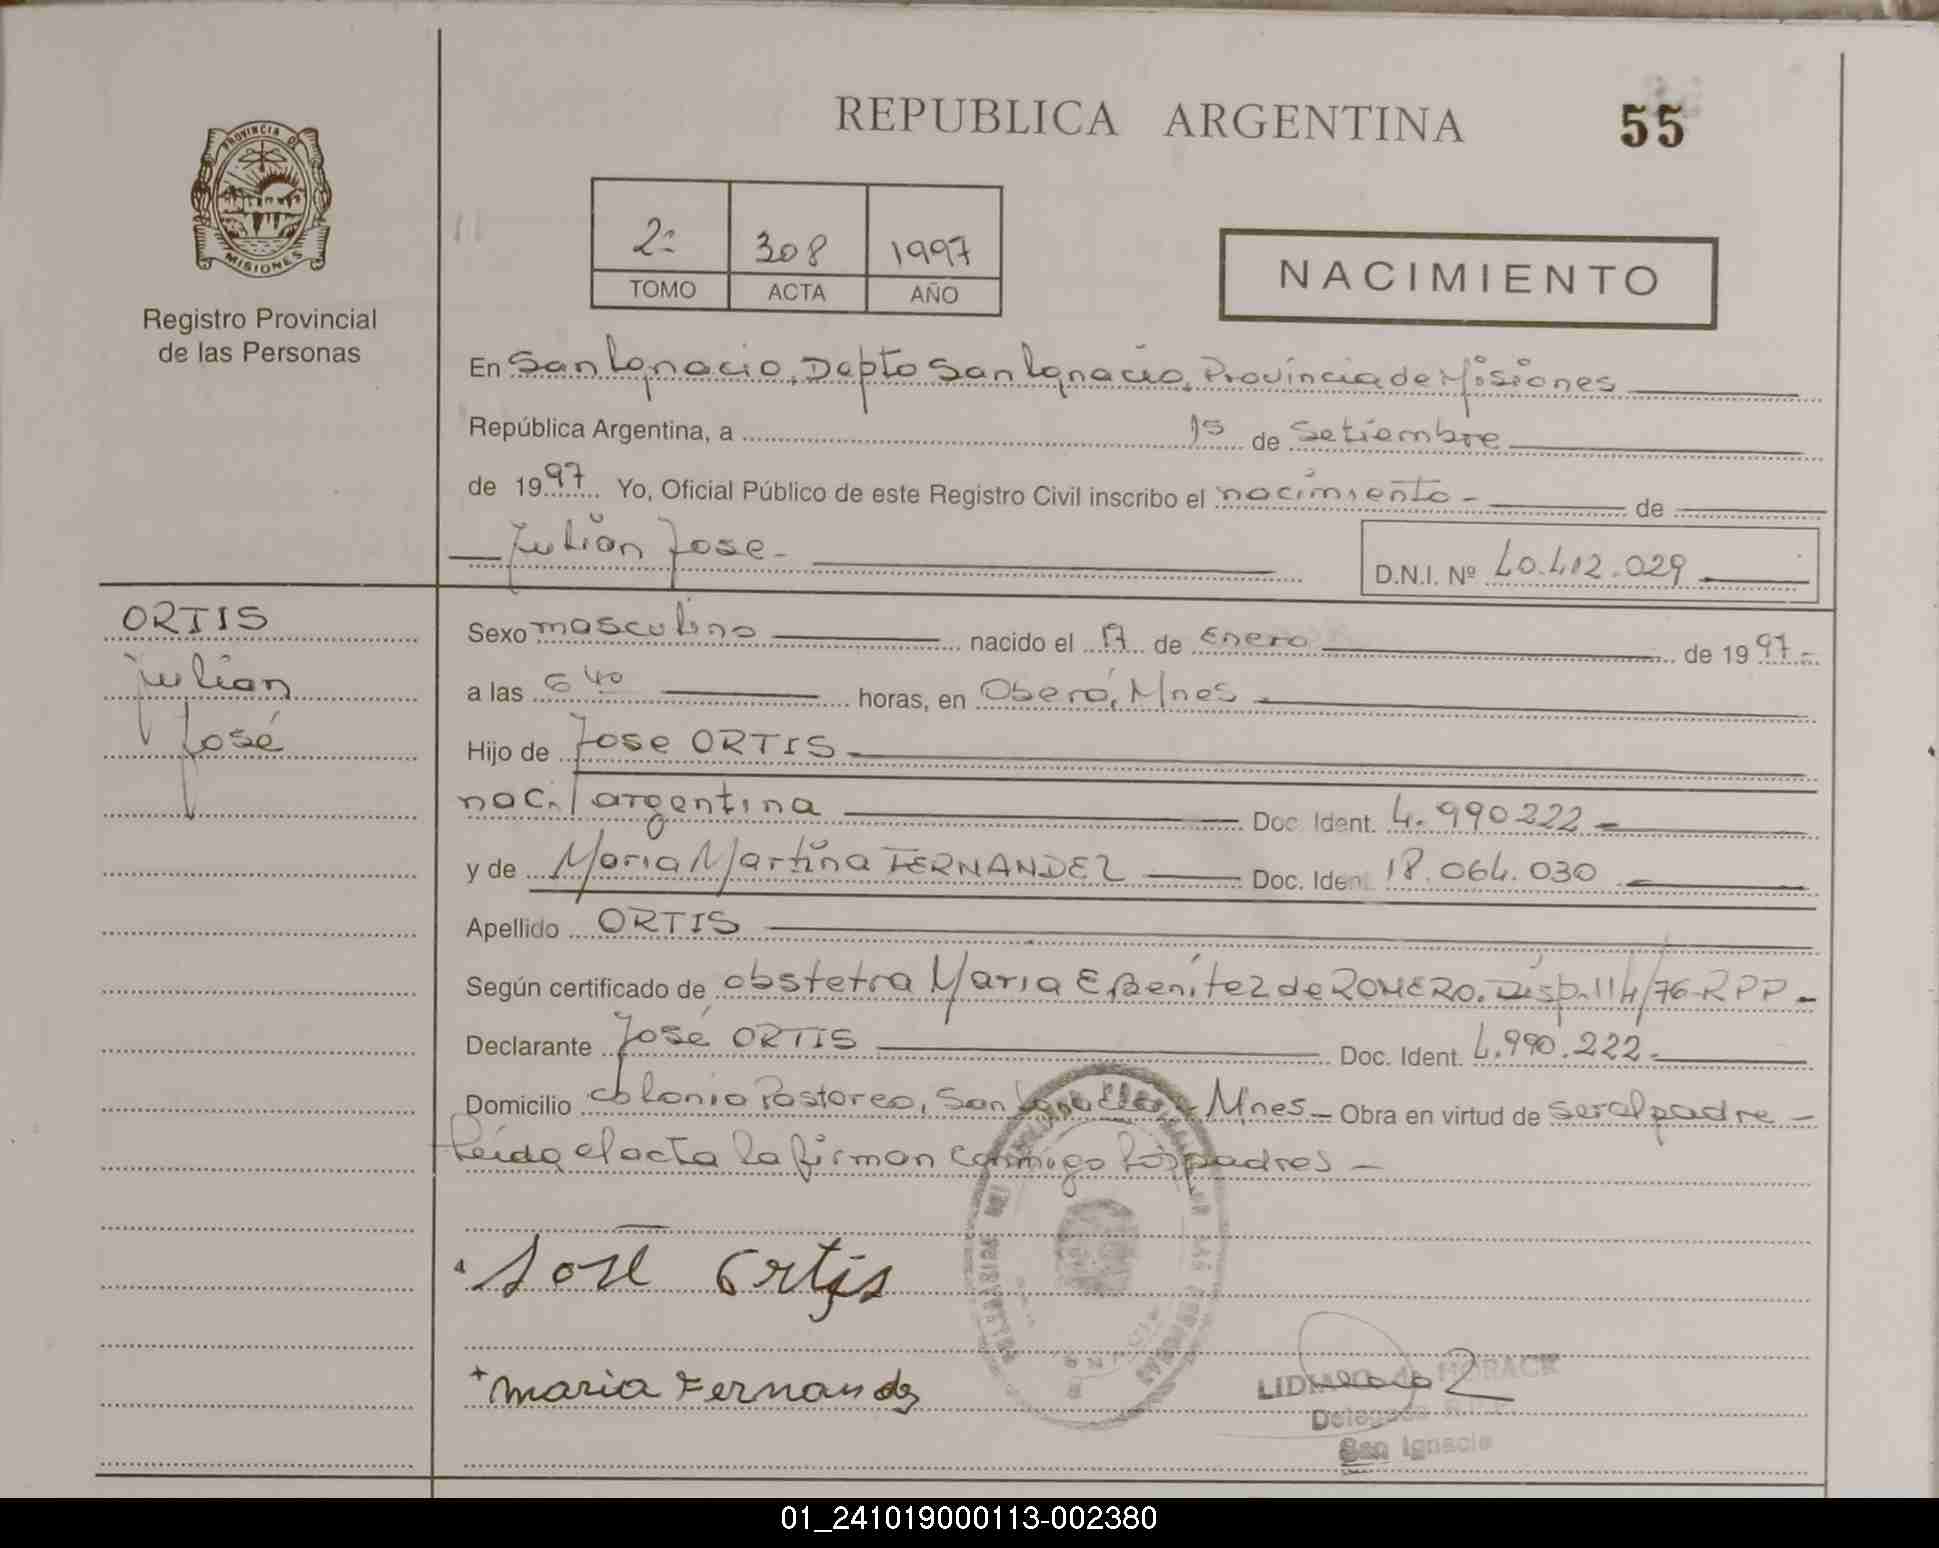 REPUBLICA ARGENTINA
55
PROVINCIA DE
MISIONES
Registro Provincial
de las Personas
2º 308 1997
TOMO ACTA AÑO
NACIMIENTO
En San Ignacio, Depto San Ignacio, Provincia de Misiones
República Argentina, a 15 de Setiembre
de 1997 Yo, Oficial Público de este Registro Civil inscribo el nacimiento - de
Julian Jose -
D.N.I. Nº 40.412.029
ORTIS
Julian
José
Sexo masculino nacido el 17 de Enero de 1997-
a las 6 40 horas, en Oberá, Mnes
Hijo de Jose ORTIS
nac./argentina Doc. Ident. 4.990222-
y de Maria Martina FERNANDEZ Doc. Ident 18.064.030
Apellido ORTIS
Según certificado de obstetra Maria E Benitez de ROMERO. Disp. 114/76-RPP-
Declarante José ORTIS Doc. Ident. 4.990.222-
Domicilio Colonia Pastoreo, San Ignacio, Mnes - Obra en virtud de ser el padre -
Leida el acta la firman conmigo los padres -
José Ortis
+ maria Fernandes
HORACK
Delegada R.P.P.
San Ignacio
01_241019000113-002380